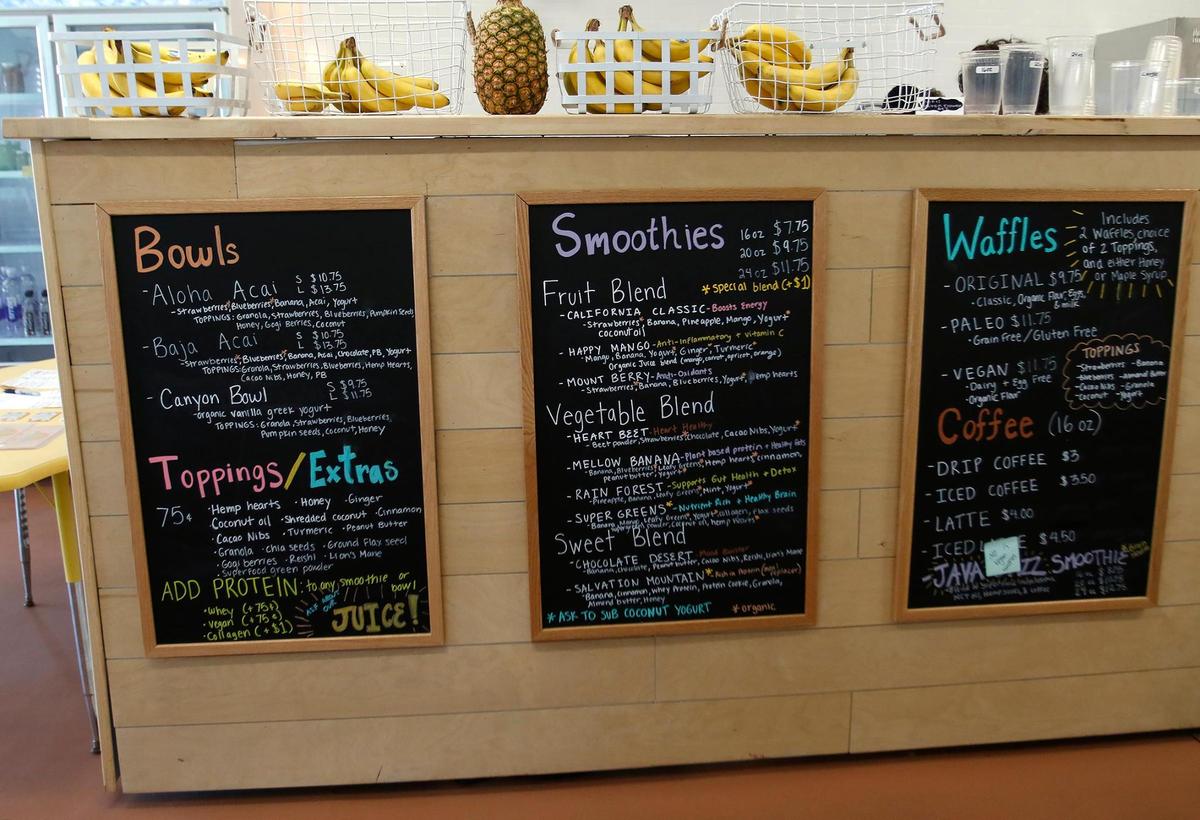 Bowls
- Aloha Acai S $10.75
L $13.75
- Strawberries, Blueberries, Banana, Acai, Yogurt
TOPPINGS: Granola, Strawberries, Blueberries, Pumpkin Seeds
Honey, Gogi Berries, Coconut
- Baja Acai S $10.75
L $13.75
- Strawberries, Blueberries, Banana, Acai, Chocolate, PB, Yogurt
TOPPINGS: Granola, Strawberries, Blueberries, Hemp Hearts,
Cacao Nibs, Honey, PB
- Canyon Bowl S $9.75
L $11.75
- organic vanilla greek yogurt
TOPPINGS: Granola, Strawberries, Blueberries,
Pumpkin seeds, Coconut, Honey
Toppings/Extras
75¢ · Hemp hearts · Honey · Ginger
· Coconut oil · Shredded coconut · Cinnamon
· Cacao Nibs · Turmeric · Peanut Butter
· Granola · chia seeds · Ground Flax seed
· Gogi berries · Reishi · Lion's Mane
· Superfood green powder
ADD PROTEIN: to any smoothie or bowl
· Whey (+75¢)
· Vegan (+75¢)
· Collagen (+$1)
JUICE!
Smoothies
16 oz $7.75
20 oz $9.75
24 oz $11.75
*special blend (+$1)
Fruit Blend
- CALIFORNIA CLASSIC - Boosts Energy
- Strawberries*, Banana, Pineapple, Mango, Yogurt*
coconut oil
- HAPPY MANGO - Anti-inflammatory + vitamin C
- Mango, Banana, Yogurt*, Ginger*, Turmeric*
Organic Juice blend (mango, carrot, apricot, orange)
- MOUNT BERRY - Anti-Oxidants
- Strawberries*, Banana, Blueberries, Yogurt*, Hemp hearts
Vegetable Blend
- HEART BEET - Heart Healthy
- Beet powder, Strawberries*, Chocolate, Cacao Nibs, Yogurt*
- MELLOW BANANA - Plant based protein + Healthy fats
- Banana, Blueberries*, Leafy Greens*, Hemp hearts*, cinnamon,
peanut butter, Yogurt*
- RAIN FOREST - Supports Gut Health + Detox
- Pineapple, Banana, Leafy Greens*, Mint, Yogurt*
- SUPER GREENS* - Nutrient Rich + Healthy Brain
- Banana, Mango, Leafy Greens*, Yogurt*, collagen, flax seeds
supergreen powder, coconut oil, hemp hearts*
Sweet Blend
- CHOCOLATE DESERT - Mood Booster
- Banana, Chocolate, Peanut butter, Cacao Nibs, Reishi, Lion's Mane
- SALVATION MOUNTAIN* - Rich in Protein
- Banana, cinnamon, Whey Protein, Protein Cookie, Granola,
Almond butter, Honey
*ASK TO SUB COCONUT YOGURT *organic
Waffles
Includes
2 Waffles, choice
of 2 Toppings,
and either Honey
or Maple Syrup
- ORIGINAL $9.75
· Classic, Organic Flour, Eggs,
& milk
- PALEO $11.75
· Grain Free/Gluten Free
- VEGAN $11.75
· Dairy + Egg Free
· Organic Flour
TOPPINGS
- Strawberries - Banana
- Blueberries - Almond Butter
- Cacao Nibs - Granola
- Coconut - Yogurt
Coffee (16 oz)
- DRIP COFFEE $3
- ICED COFFEE $3.50
- LATTE $4.00
- ICED $4.50
JAVA SMOOTHIE